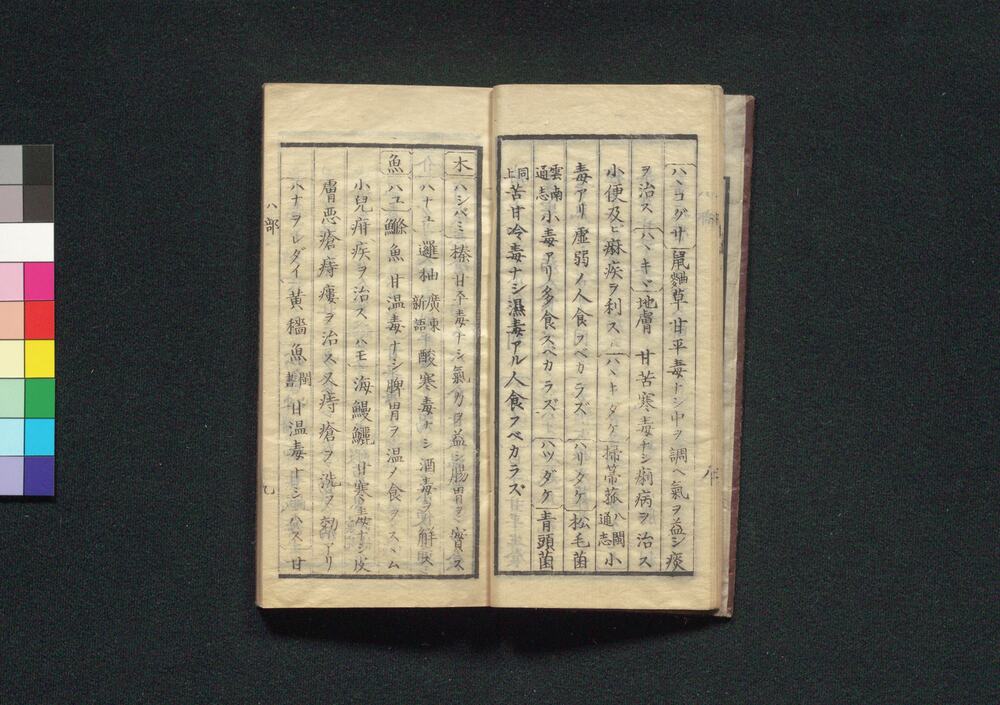 ハヽコグサ 鼠麴草 甘平毒ナシ中ヲ調ヘ氣ヲ益シ痰
ヲ治ス ハヽキヾ 地膚 甘苦寒毒ナシ痢病ヲ治ス
小便及ビ痳疾ヲ利ス ハヽキダケ 掃箒菰 八閩通志 小
毒アリ虛弱ノ人食フベカラズ ハリダケ 松毛菌
雲南通志 小毒アリ多食スベカラズ ハツダケ 青頭菌
同上 苦甘冷毒ナシ濕毒アル人食フベカラズ
木 ハシバミ 榛 甘平毒ナシ氣力ヲ益シ腸胃ヲ實ス
ハナユ 邏柚 廣東新語 酸寒毒ナシ酒毒ヲ解ス
魚 ハユ 鰷魚 甘温毒ナシ脾胃ヲ温メ食ヲスヽム
小兒疳疾ヲ治ス ハモ 海鰻鱺 甘寒毒ナシ皮
膚惡瘡痔瘻ヲ治ス又痔瘡ヲ洗フ効アリ
ハナヲレダイ 黄穡魚 閩書 甘温毒ナシ ハス 甘
ハ部
七